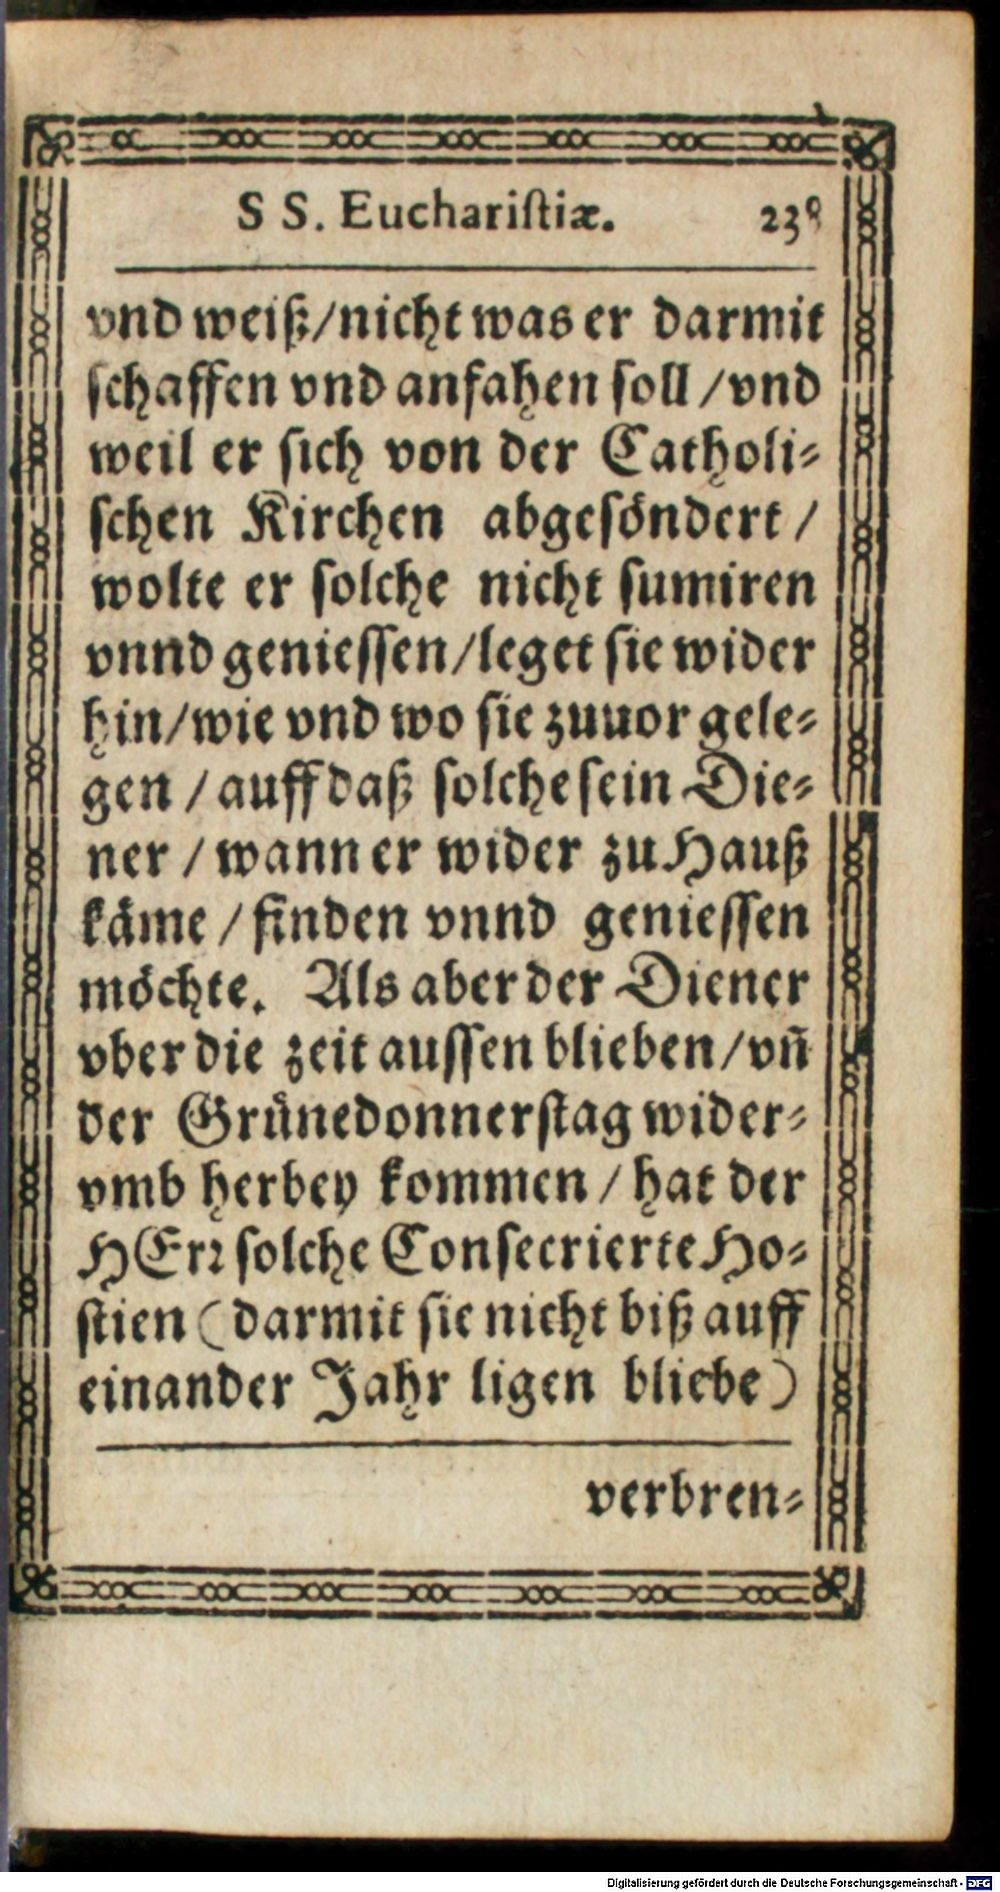 S S. Euchariſtiæ. 238
vnd weiß/nicht was er darmit
ſchaffen vnd anfahen ſoll /vnd
weil er ſich von der Catholi⸗
ſchen Kirchen abgeſöndert /
wolte er ſolche nicht ſumiren
vnnd genieſſen/leget ſie wider
hin/wie vnd wo ſie zuuor gele⸗
gen / auff daß ſolche ſein Die⸗
ner / wann er wider zu Hauß
käme / finden vnnd genieſſen
möchte. Als aber der Diener
vber die zeit auſſen blieben/vn̄
der Grünedonnerſtag wider⸗
vmb herbey kommen / hat der
HErꝛ ſolche Conſecrierte Ho⸗
ſtien (darmit ſie nicht biß auff
einander Jahr ligen bliebe)
verbren⸗
Digitalisierung gefördert durch die Deutsche Forschungsgemeinschaft - DFG